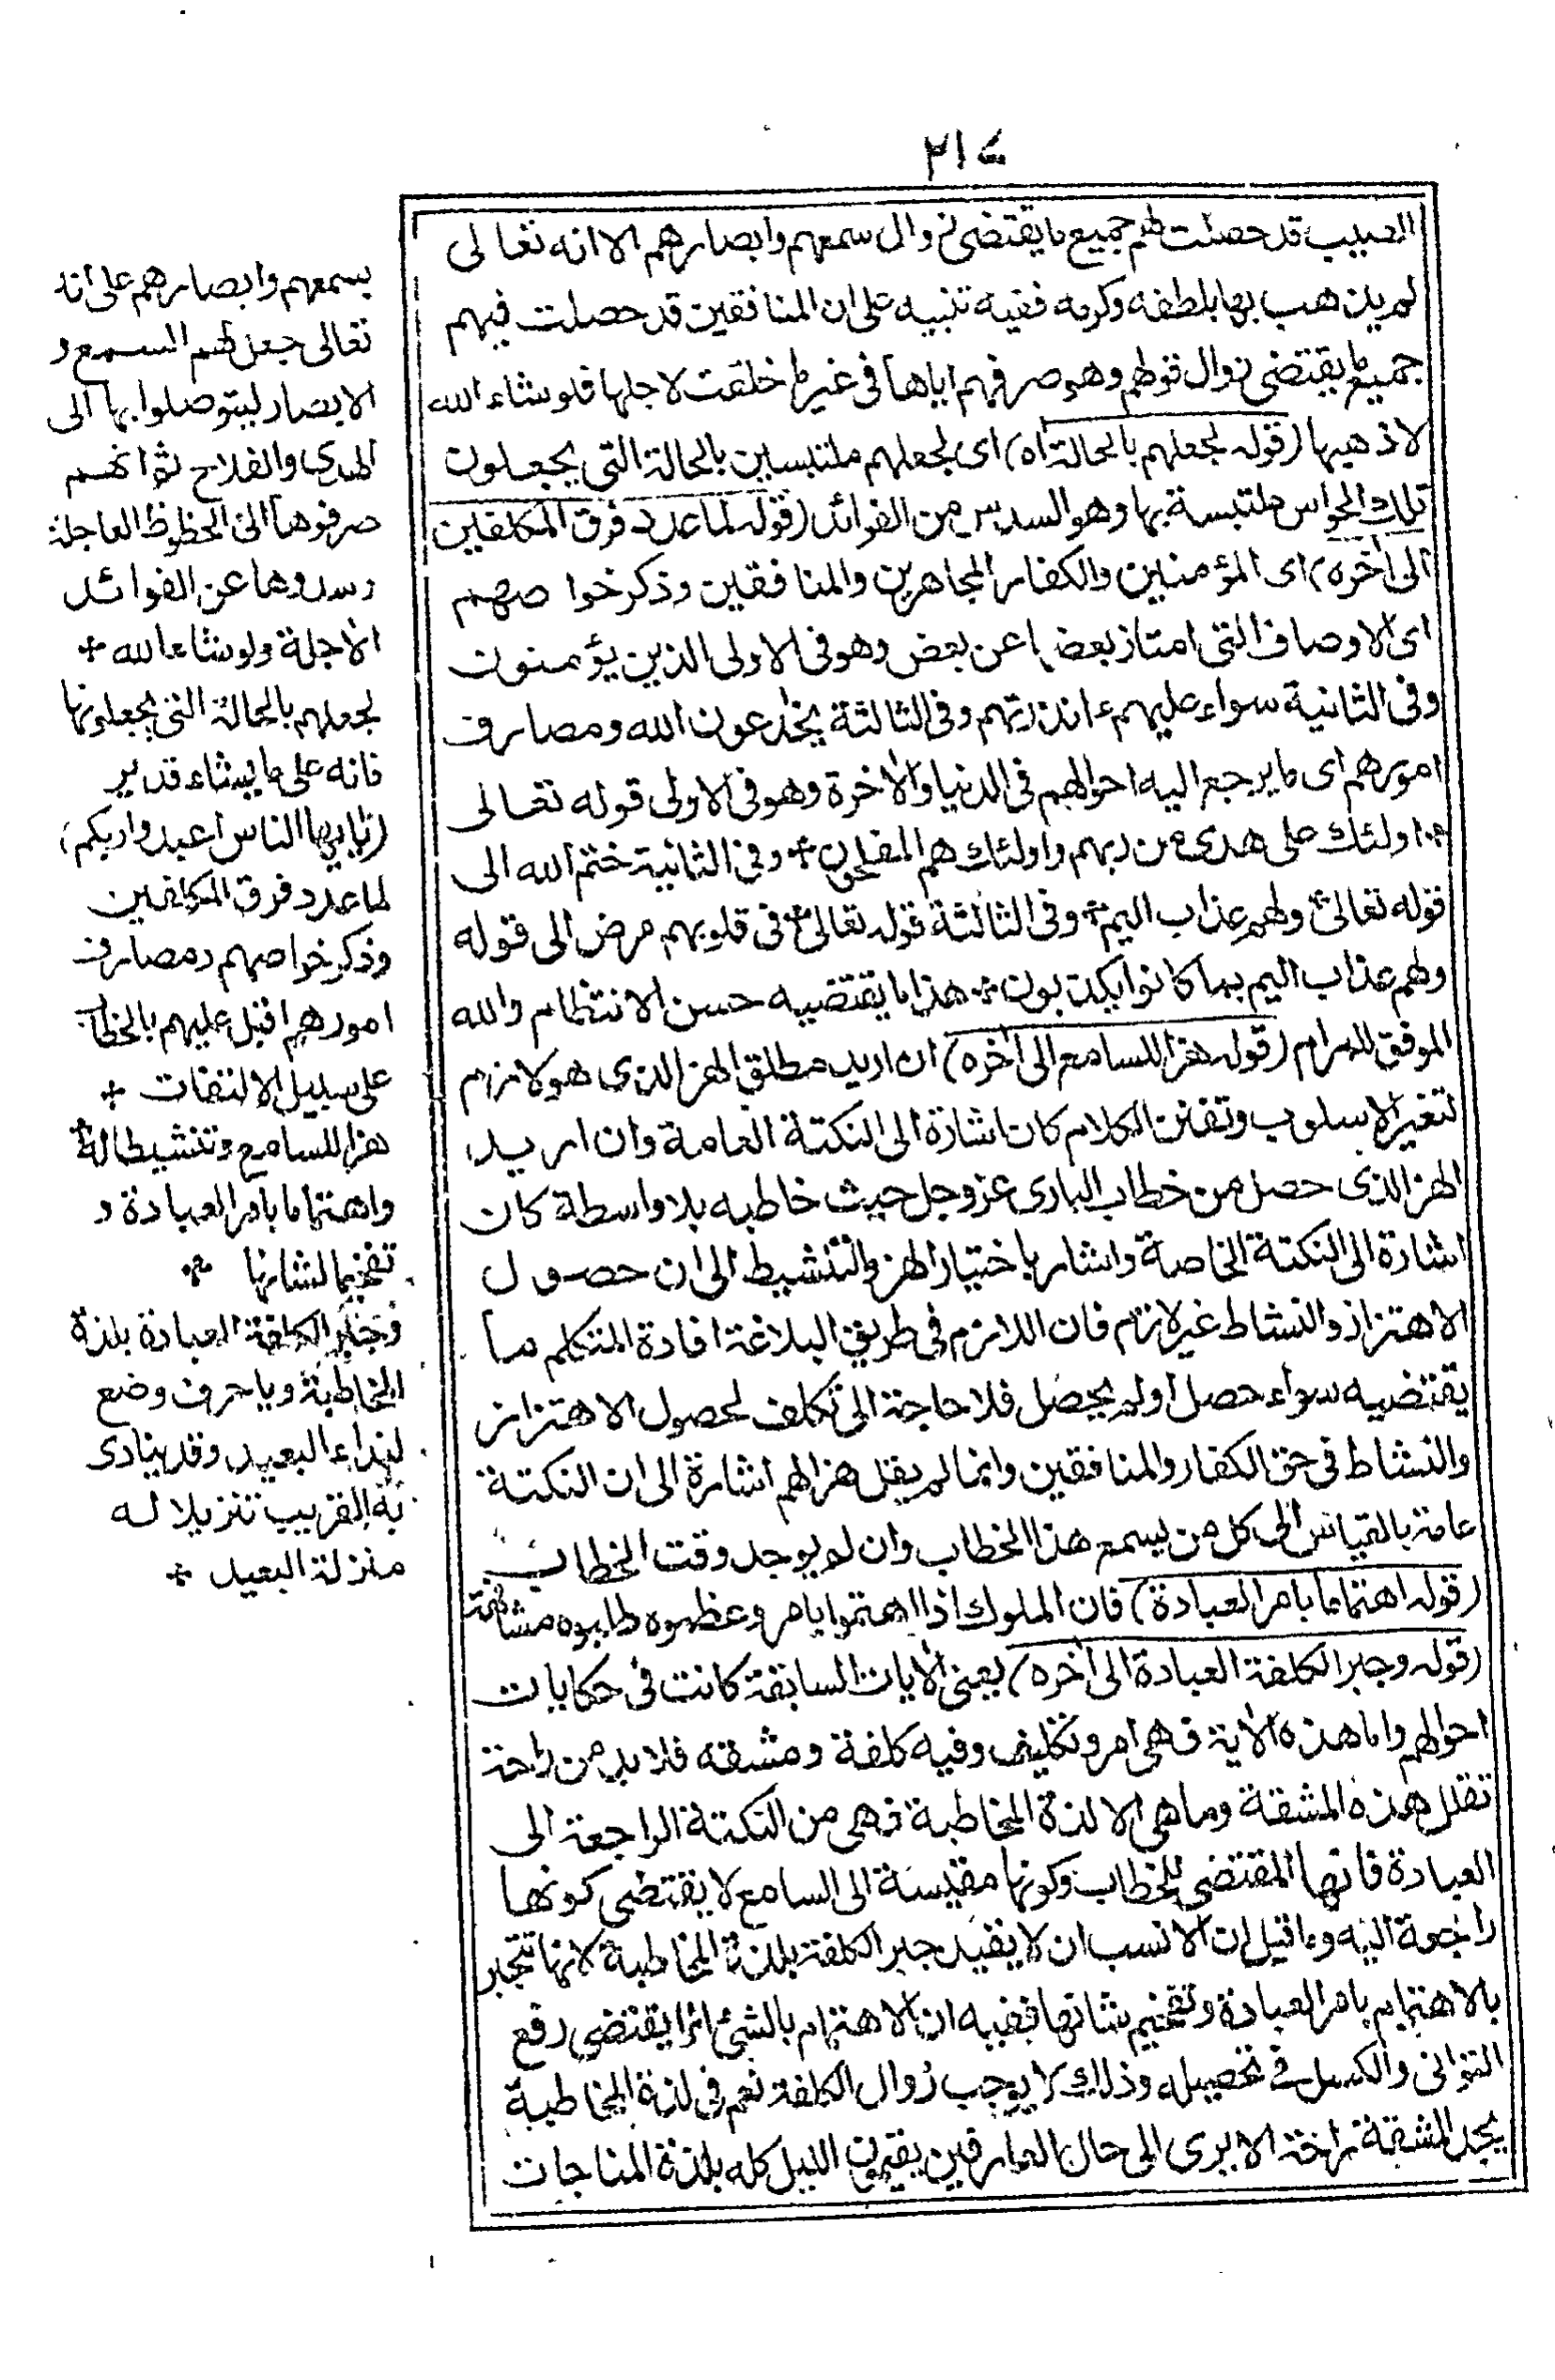 ٢١٧
الصيب قد حصلت لهم جميع ما يقتضى زوال سمعهم وابصارهم الا انه تعالى
لم يذهب بها بلطفه وكرمه ففيه تنبيه على ان المنافقين قد حصلت فيهم
جميع ما يقتضى زوال قوتهم وهو صرفهم اياها فى غير ما خلقت لاجلها فلو شاء الله
لاذهبها (قوله لجعلهم بالحالة اه) اى لجعلهم ملتبسين بالحالة التى يجعلون
تلك الحواس ملتبسة بها وهو السد من الفوائد (قوله لما عدد فرق المكلفين
الى آخره) اى المؤمنين والكفار المجاهرين والمنافقين وذكر خواصهم
اى الاوصاف التى امتاز بعضها عن بعض وهو فى الاولى الذين يؤمنون
وفى الثانية سواء عليهم ءانذرتهم وفى الثالثة يخادعون الله ومصارف
امورهم اى ما يرجع اليه احوالهم فى الدنيا والآخرة وهو فى الاولى قوله تعالى
اولئك على هدى من ربهم واولئك هم المفلحون وفى الثانية ختم الله الى
قوله تعالى ولهم عذاب اليم وفى الثالثة قوله تعالى فى قلوبهم مرض الى قوله
ولهم عذاب اليم بما كانوا يكذبون هذا ما يقتضيه حسن الانتظام والله
الموفق للمرام (قوله هزا للسامع الى آخره) ان اريد مطلق الهز الذى هو لازم
لتغير الاسلوب وتفنن الكلام كان اشارة الى النكتة العامة وان اريد
الهز الذى حصل من خطاب البارى عز وجل حيث خاطبه بلا واسطة كان
اشارة الى النكتة الخاصة واشار باختيار الهز والتنشيط الى ان حصول
الاهتزاز والنشاط غير لازم فان اللازم فى طريق البلاغة افادة المتكلم ما
يقتضيه سواء حصل او لم يحصل فلا حاجة الى تكلف لحصول الاهتزاز
والنشاط فى حق الكفار والمنافقين وانما لم يقل هزا لهم اشارة الى ان النكتة
عامة بالقياس الى كل من يسمع هذا الخطاب وان لم يوجد وقت الخطاب
(قوله اهتماما بامر العبادة) فان الملوك اذا اهتموا بامر وعظموه طلبوه مشافهة
(قوله وجبر الكلفة العبادة الى آخره) يعنى الآيات السابقة كانت فى حكايات
احوالهم واما هذه الآية فهى امر وتكليف وفيه كلفة ومشقه فلا بد من راحة
تقلل هذه المشقة وما هى الا لذة المخاطبة فهى من النكتة الراجعة الى
العبادة فانها المقتضى للخطاب وكونها مقيسة الى السامع لا يقتضى كونها
راجعة اليه وما قيل ان الانسب ان لا يقيد جبر الكلفة بلذة المخاطبة لانها تنجبر
بالاهتمام بامر العبادة وتفخيم شانها ففيه ان الاهتمام بالشئ انما يقتضى رفع
التوانى والكسل فى تحصيله وذلك لا يوجب زوال الكلفة نعم فى لذة المخاطبة
يجد المشقة راحة الا يرى الى حال العارفين يقيمون الليل كله بلذة المناجات
بسمعهم وابصارهم على انه
تعالى جعل لهم السمع و
الابصار ليتوصلوا بها الى
الهدى والفلاح ثم انهم
صرفوها الى الحظوظ العاجلة
وسدوها عن الفوائد
الآجلة ولو شاء الله
لجعلهم بالحالة التى يجعلونها
فانه على ما يشاء قدير
(يا ايها الناس اعبدوا ربكم)
لما عدد فرق المكلفين
وذكر خواصهم ومصارف
امورهم اقبل عليهم بالخطاب
على سبيل الالتفات
هزا للسامع وتنشيطا له
واهتماما بامر العبادة و
تفخيما لشانها
وجبر الكلفة العبادة بلذة
المخاطبة ويا حرف وضع
لنداء البعيد وقد ينادى
به القريب تنزيلا له
منزلة البعيد